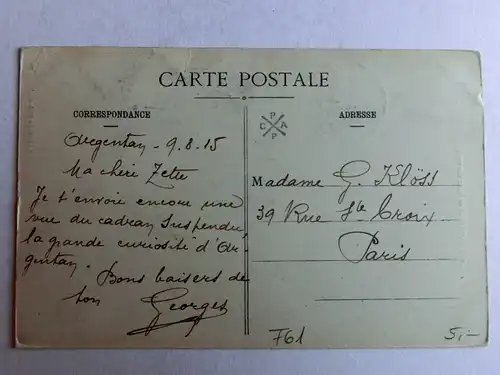 CARTE POSTALE
CORRESPONDANCE
ADRESSE
P
C A
P
Argentan - 9.8.15
Ma chéri Zette
Je t'envoie encore une
vue du cadran suspendu,
la grande curiosité d'Ar-
gentan. Bons baisers de
ton Georges
Madame G. Klöss
39 Rue Ste Croix
Paris
F61
5,-